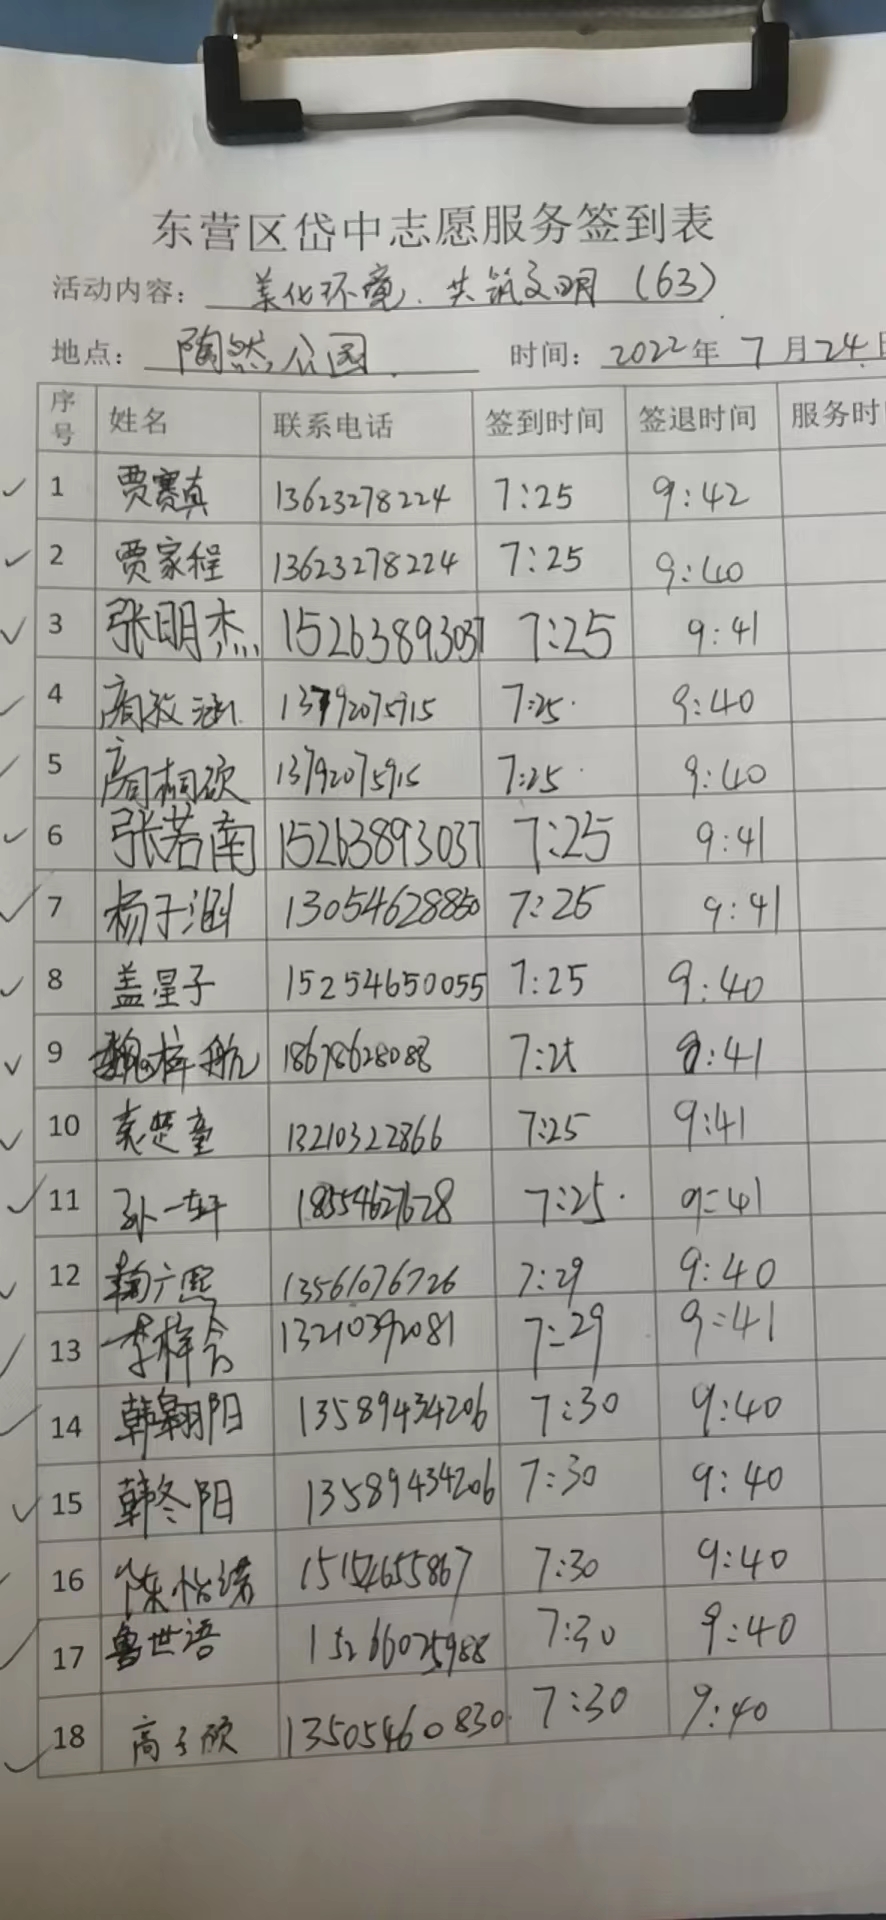 东营区岱中志愿服务签到表
活动内容： 美化环境、共筑文明（63）
地点： 陶然公园 时间： 2022年 7月24日
序号 姓名 联系电话 签到时间 签退时间 服务时
1 贾赛真 13623278224 7:25 9:42
2 贾家程 13623278224 7:25 9:40
3 张明杰 15263893037 7:25 9:41
4 13792075915 7:25 9:40
5 13792075915 7:25 9:40
6 张若南 15263893037 7:25 9:41
7 杨子涵 13054628850 7:25 9:41
8 盖星子 15254650055 7:25 9:40
9 魏梓航 18678628088 7:25 9:41
10 袁楚童 13210322866 7:25 9:41
11 孙一轩 18554627628 7:25 9:41
12 13561076726 7:29 9:40
13 李梓含 13210392081 7:29 9:41
14 韩翱阳 13589434206 7:30 9:40
15 韩冬阳 13589434206 7:30 9:40
16 陈怡诺 15154655867 7:30 9:40
17 鲁世语 15266025988 7:30 9:40
18 高子硕 13505460830 7:30 9:40